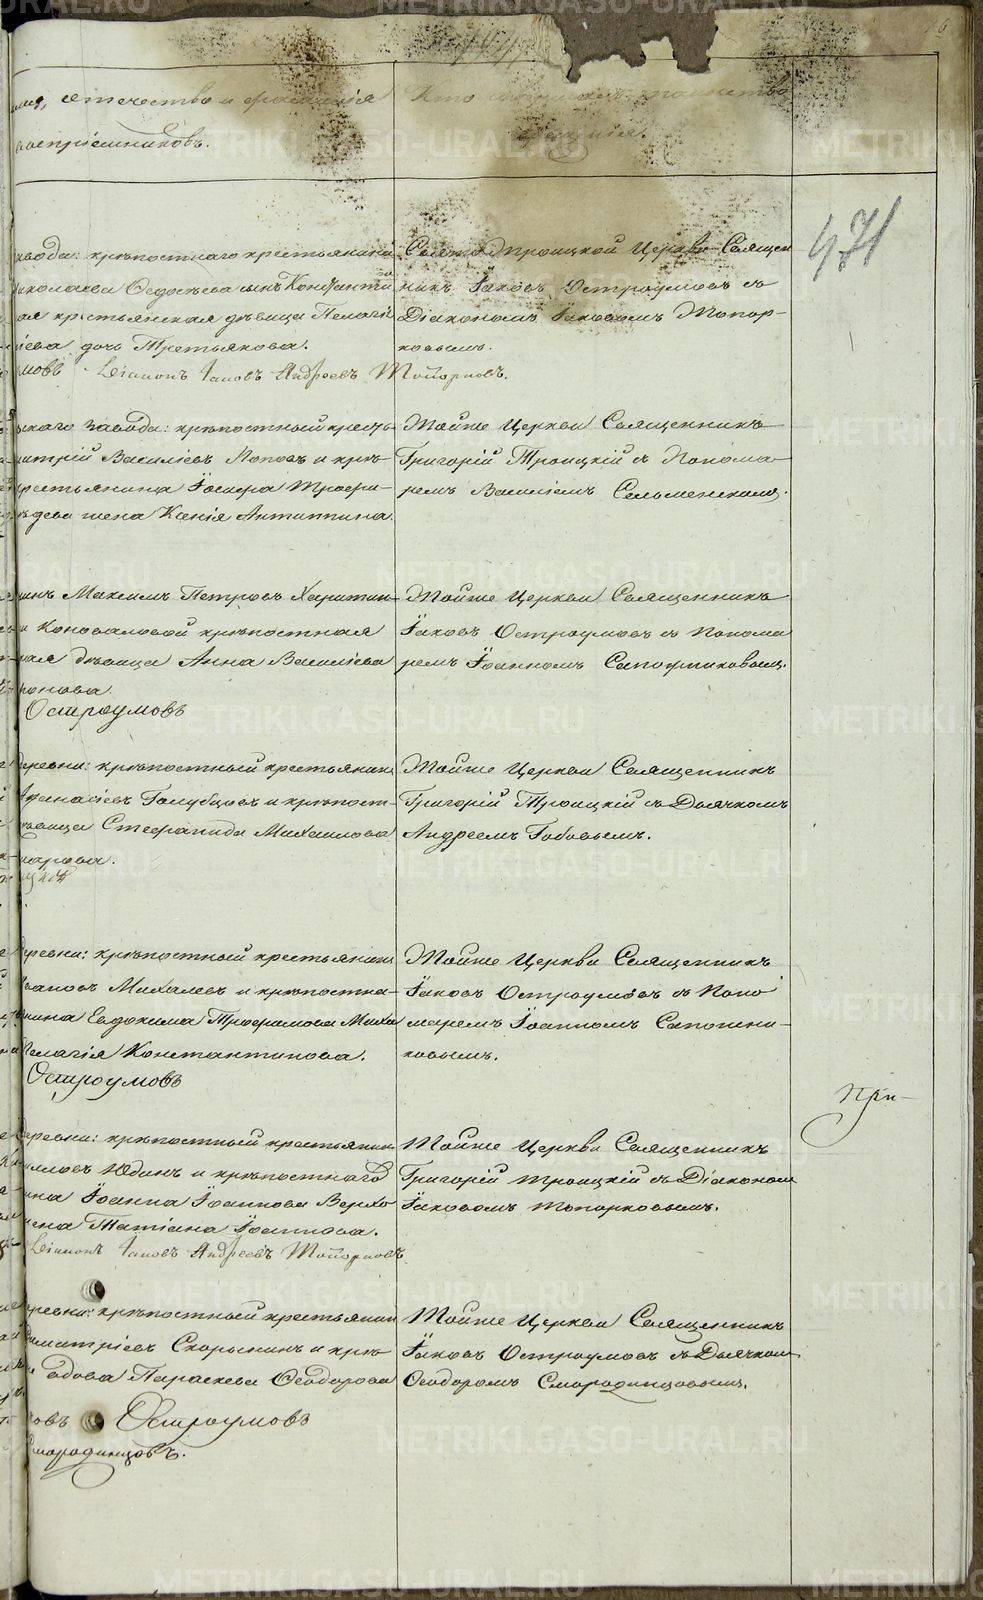 отечество и фамилія
воспріемниковъ.
Кто совершалъ таинство
крещенія.
471
завода: крѣпостнаго крестьянина
Николаева Ѳедосѣева сынъ Константи
ая крестьянская дѣвица Пелагі
дочь Третьякова.
Діаконъ Іаковъ Андреевъ Топорковъ.
Свято Троицкой Церкви Священ
никъ Іаковъ Остроумовъ съ
Діакономъ Іаковомъ Топор-
ковымъ.
скаго завода: крѣпостный кресть
митрій Василіевъ Поповъ и крѣ-
рестьянина Іосифа Трофи-
дѣева жена Ксенія Антипина.
Тойже Церкви Священникъ
Григорій Троицкій съ Понома
ремъ Василіемъ
инъ Максимъ Петровъ Харитон-
и Коноваловой крѣпостная
кая дѣвица Анна Василіева
ронова.
Остроумовъ
Тойже Церкви Священникъ
Іаковъ Остроумовъ съ Понома
ремъ Іоанномъ Сапожниковымъ.
деревни: крѣпостный крестьянинъ
Афанасіевъ Голубцовъ и крѣпост-
дѣвица Стефанида Михаилова
Тойже Церкви Священникъ
Григорій Троицкій съ Дьячкомъ
Андреемъ Говобымъ.
деревни: крѣпостный крестьянинъ
Ивановъ Михалевъ и крѣпостна-
нина Евдокима Трофимова Миха
Пелагія Константинова.
Остроумовъ
Тойже Церкви Священникъ
Іаковъ Остроумовъ съ Поно
маремъ Іоанномъ Сапожни-
ковымъ.
При-
деревни: крѣпостный крестьянин
Юдинъ и крѣпостнаго
ина Іоанна Іоаннова Верхо
жена Татіана Іоаннова.
Діаконъ Іаковъ Андреевъ Топорковъ
Тойже Церкви Священникъ
Григорій Троицкій съ Діакономъ
Іаковомъ Топорковымъ.
деревни: крѣпостный крестьянин
Димитріевъ Скорынинъ и крѣ
вдова Параскева Ѳеодорова
ковъ Остроумовъ
Смородинцовъ.
Тойже Церкви Священникъ
Іаковъ Остроумовъ съ Дьячкомъ
Ѳеодоромъ Смородинцовымъ.
METRIKI.GASO-URAL.RU